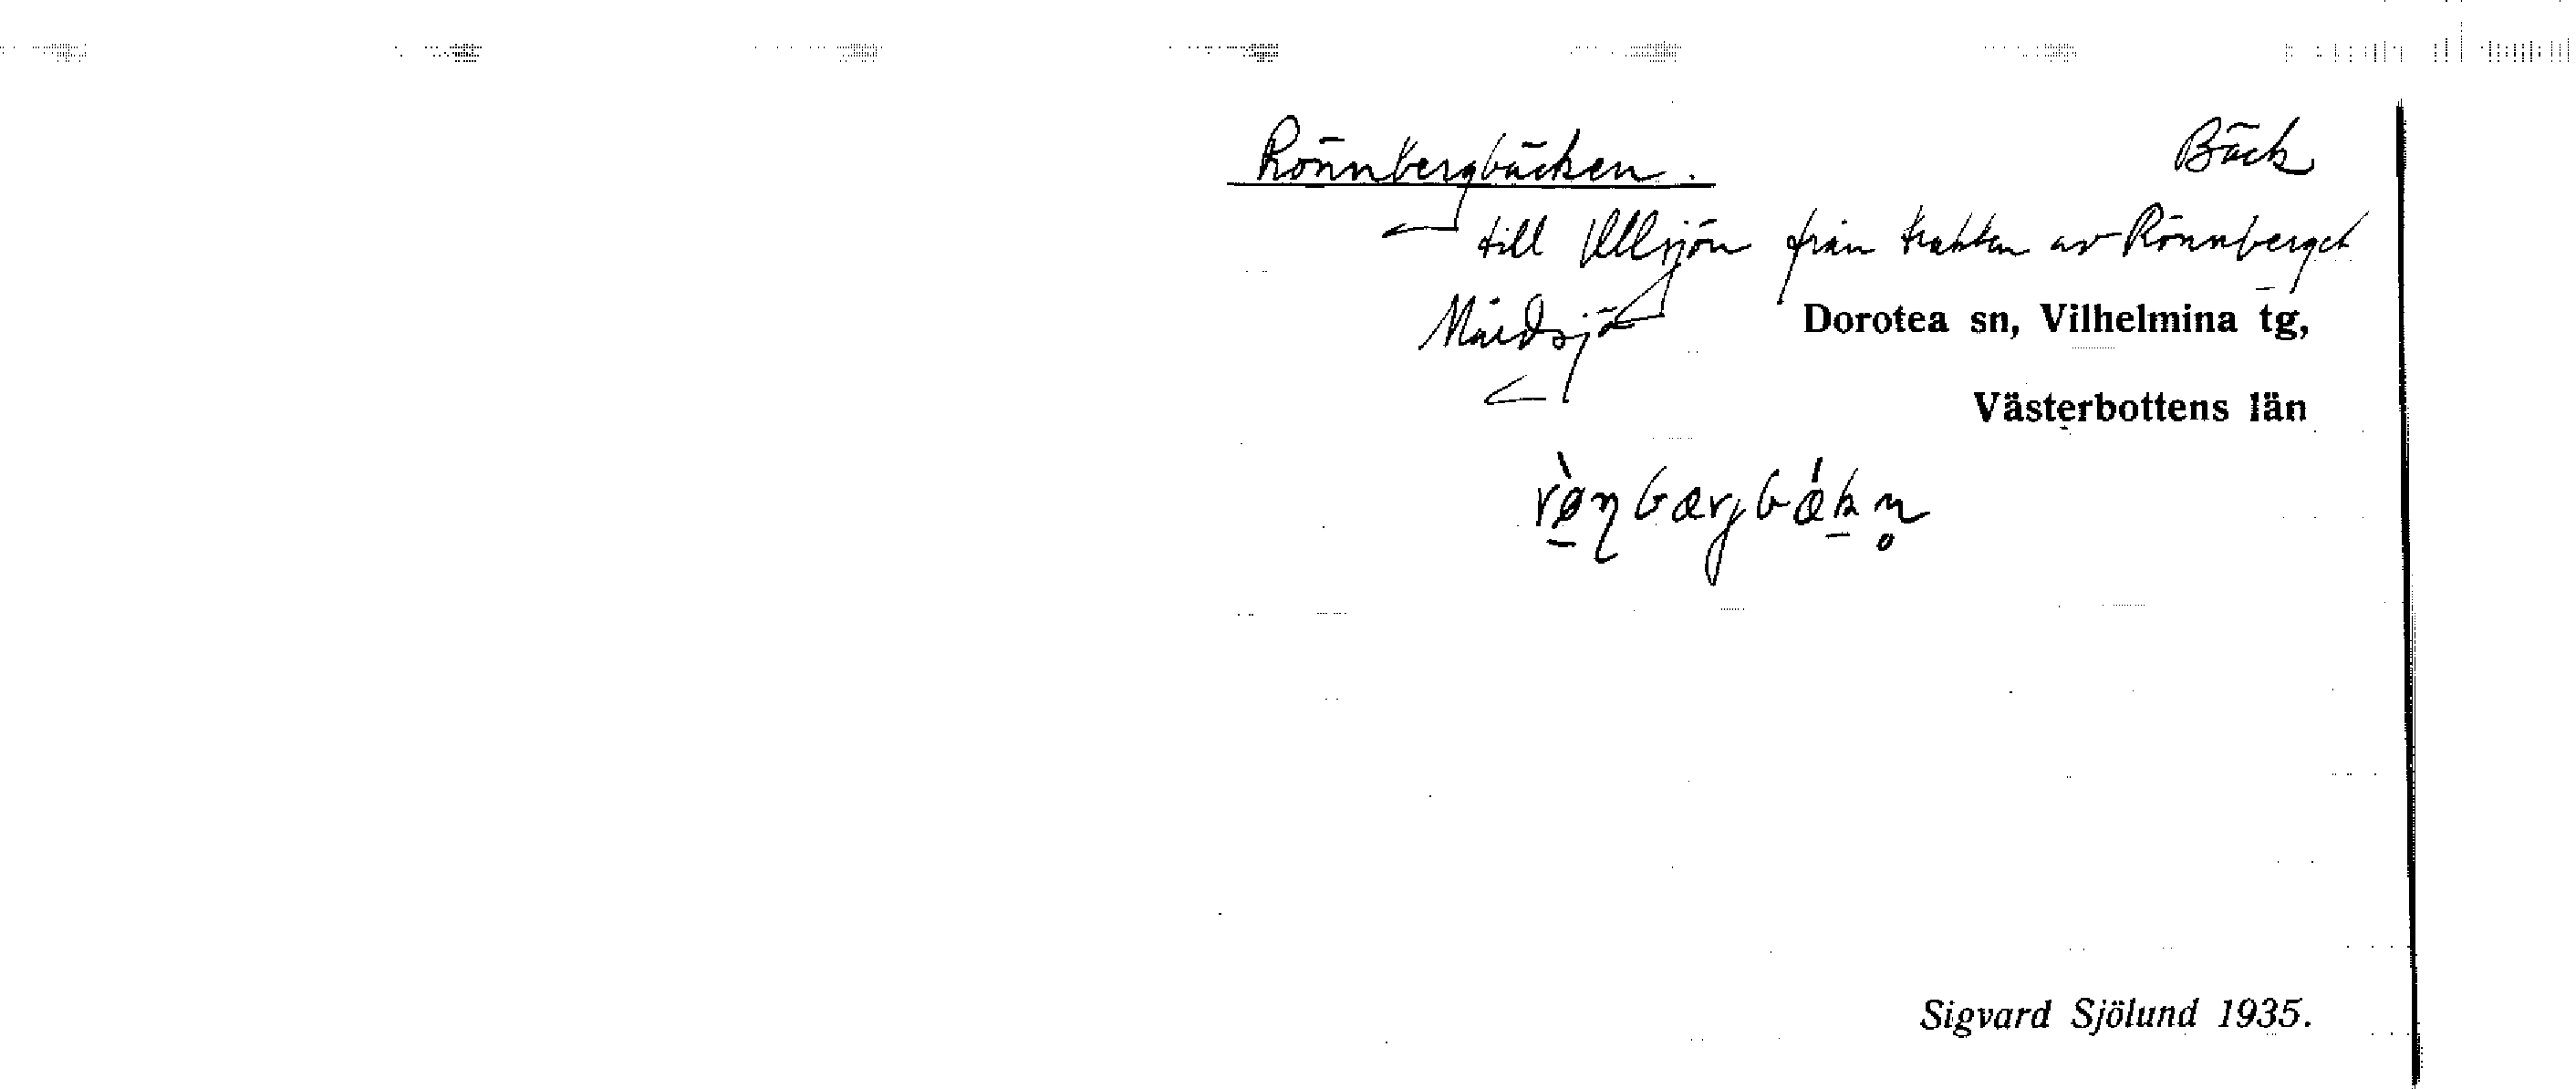 Rönnbergbäcken. Bäck
till Ullsjön från trakten av Rönnberget
Mårdsjö Dorotea sn, Vilhelmina tg,
Västerbottens län
rø̀nbærjbǽkn̥
Sigvard Sjölund 1935.